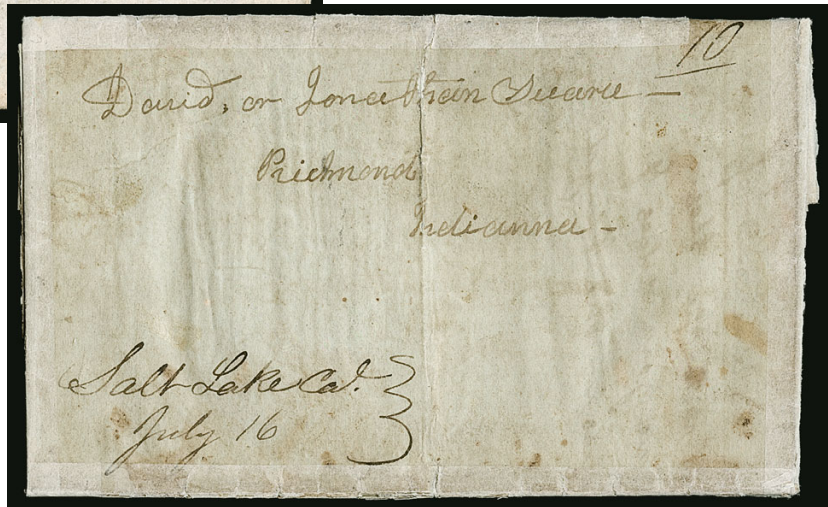 10
David, or Jonathan
Richmond
Indianna -
Salt Lake Cal.
July 16